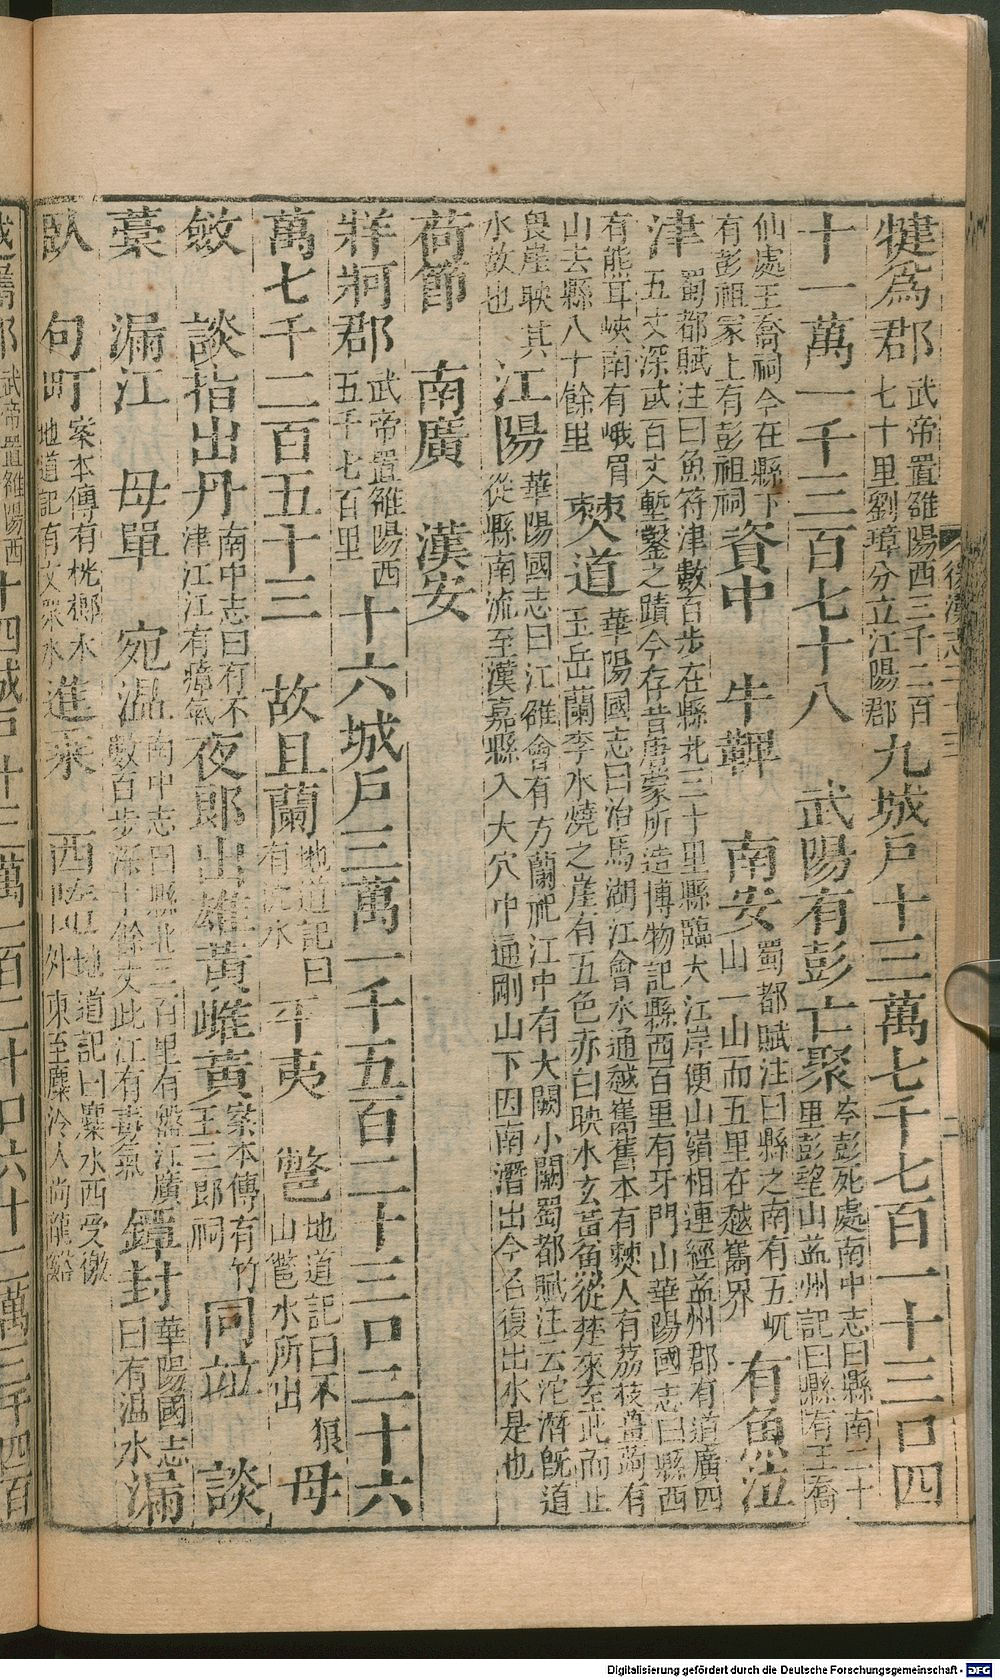 犍爲郡武帝置雒陽西三千二百七十里劉璋分立江陽郡九城戶十三萬七千七百一十三口四
十一萬一千三百七十八 武陽有彭亡聚岑彭死處南中志曰縣南二十里彭望山益州記曰縣有王喬
仙處王喬祠今在縣下有彭祖冢上有彭祖祠資中 牛鞞 南安蜀都賦注曰縣之南有五屼山一山而五里在越巂界有魚泣
津蜀都賦注曰魚符津數百步在縣北三十里縣臨大江岸便山嶺相連經益州郡有道廣四五丈深或百丈塹鑿之蹟今存昔唐蒙所造博物記縣西百里有牙門山華陽國志曰縣西
有熊耳峽南有峨眉山去縣八十餘里僰道華陽國志曰治馬湖江會水通越巂舊本有僰人有荔枝薑蒟有玉岳蘭李水燒之崖有五色赤白映水玄黃魚從楚來至此而止
畏崖映其水故也江陽華陽國志曰江雒會有方蘭祀江中有大闕小闕蜀都賦注云沱潛旣道從縣南流至漢嘉縣入大穴中通剛山下因南潛出今名復出水是也
荷節 南廣 漢安
牂牁郡武帝置雒陽西五千七百里十六城戶三萬一千五百二十三口二十六
萬七千二百五十三 故且蘭地道記曰有沈水平夷 鄨地道記曰不狼山鄨水所出毋
斂 談指出丹南中志曰有不津江江有瘴氣夜郎出雄黃雌黃案本傳有竹王三郎祠同竝 談
稾 漏江 毋單 宛溫南中志曰縣北三百里有盤江廣數百步深十餘丈此江有毒氣鐔封華陽國志曰有溫水漏
臥 句町案本傳有桄榔木地道記有文衆水進桑 西隨地道記曰麋水西受徼外東至麋泠入尚龍谿
越巂郡武帝置雒陽西十四城戶十三萬一百二十口六十二萬三千四百
Digitalisierung gefördert durch die Deutsche Forschungsgemeinschaft - DFG